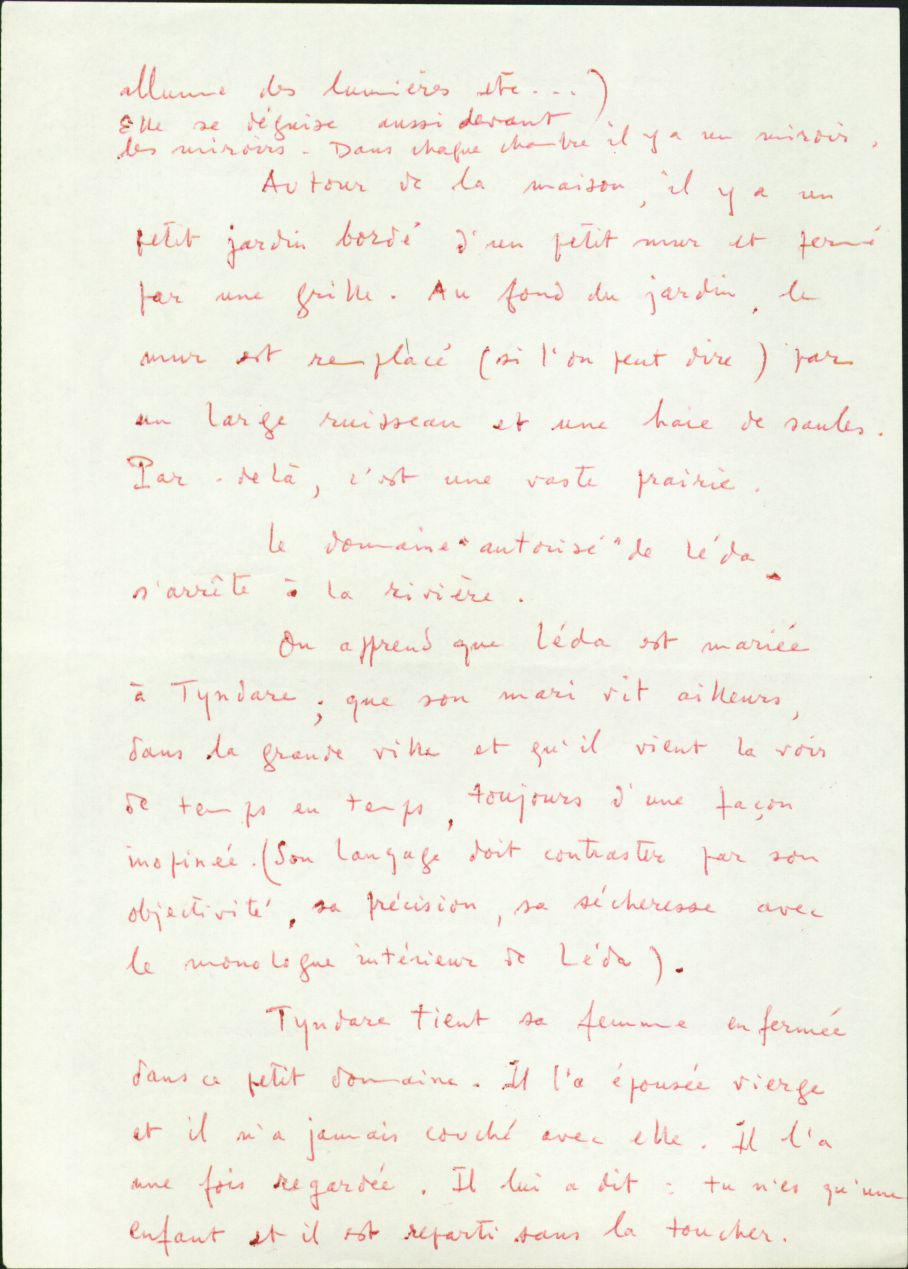 allume des lumières etc...)
Elle se déguise aussi devant
les miroirs - Dans chaque chambre il y a un miroir.
Autour de la maison, il y a un
petit jardin bordé d'un petit mur et fermé
par une grille. Au fond du jardin, le
mur est remplacé (si l'on peut dire) par
un large ruisseau et une haie de saules.
Par-delà, c'est une vaste prairie.
Le domaine "autorisé" de Léda
s'arrête à la rivière.
On apprend que Léda est mariée
à Tyndare ; que son mari vit ailleurs,
dans la grande ville et qu'il vient la voir
de temps en temps, toujours d'une façon
inopinée. (Son langage doit contraster par son
objectivité, sa précision, sa sécheresse avec
le monologue intérieur de Léda).
Tyndare tient sa femme enfermée
dans ce petit domaine. Il l'a épousée vierge
et il n'a jamais couché avec elle. Il l'a
une fois regardée. Il lui a dit : tu n'es qu'une
enfant et il est reparti sans la toucher.